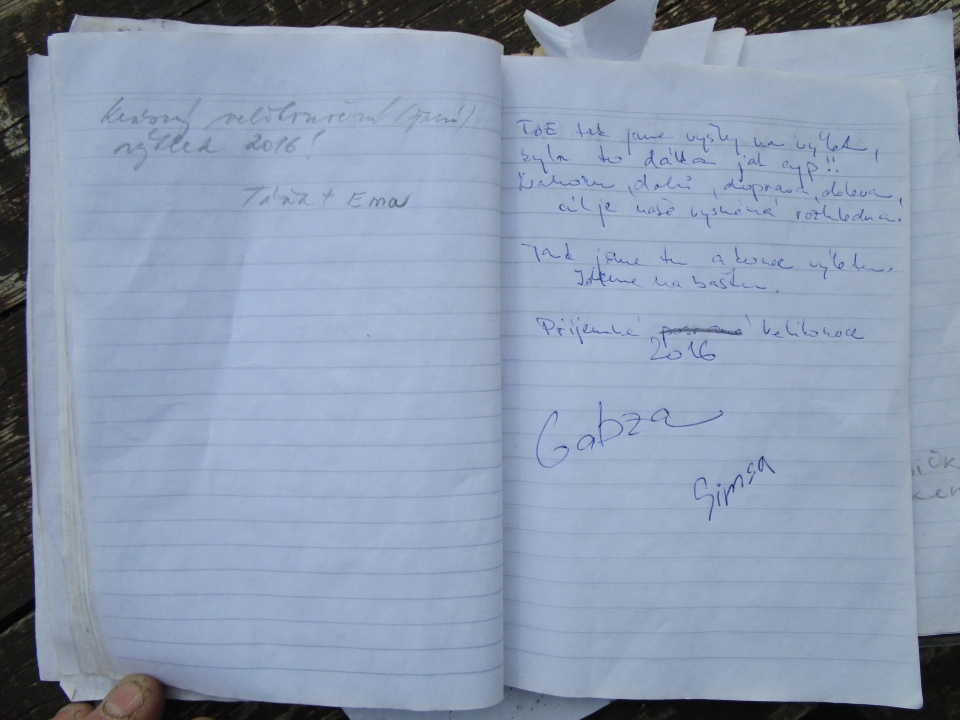 Krásný velikonoční (jarní)
výhled 2016!
Táňa + Ema
Tož tak jsme vyšly na výlet,
byla to dálka jak cyp!!
Nahoru, dolů, doprava, doleva,
cíl je naše vysněná rozhledna.
Tak jsme tu a konec výletu.
Jdeme na baštu.
Příjemné velikonoce
2016
Gabza
Simsa